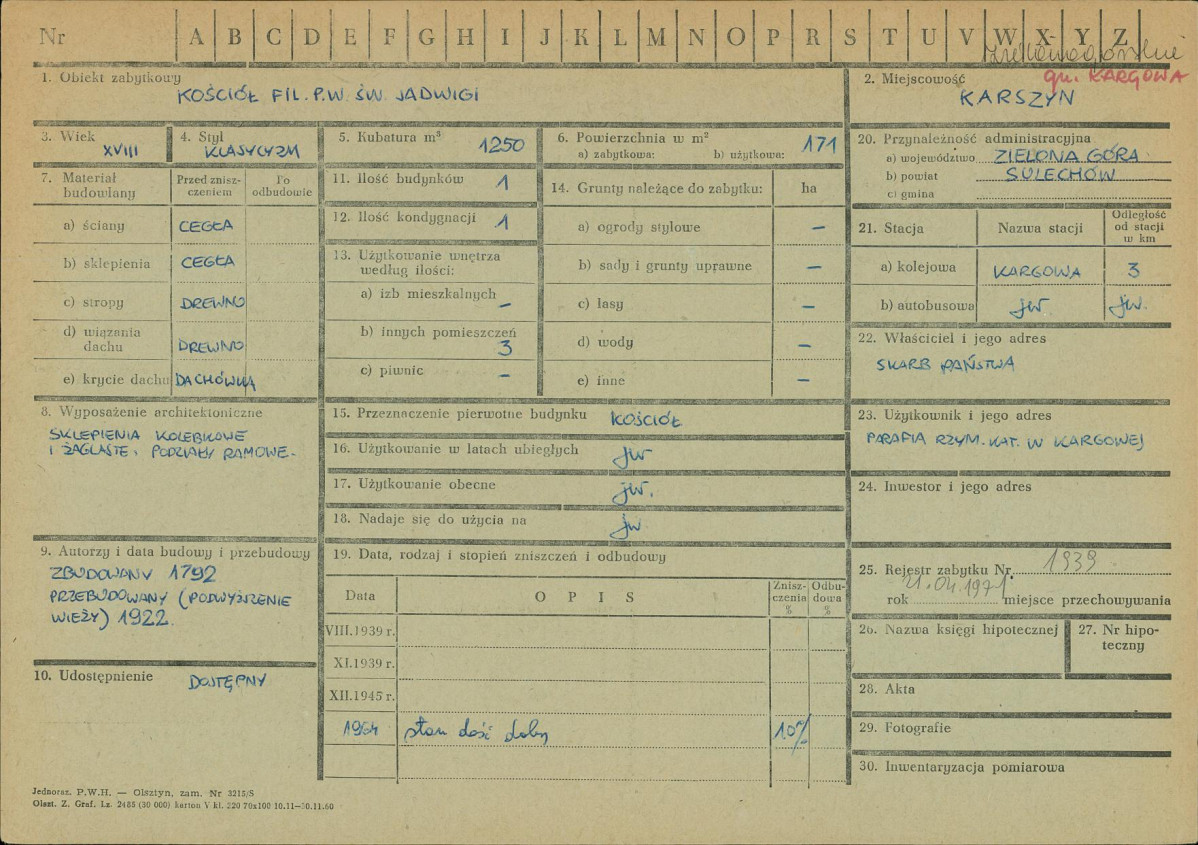 Nr A B C D E F G H I J K L M N O P R S T U V W X Y Z
zielonogórskie
gm. KARGOWA
1. Obiekt zabytkowy
KOŚCIÓŁ FIL. P.W. ŚW. JADWIGI
2. Miejscowość
KARSZYN
3. Wiek
XVIII
4. Styl
KLASYCYZM
5. Kubatura m³
1250
6. Powierzchnia w m²
a) zabytkowa: b) użytkowa:
171
7. Materiał budowlany
Przed zniszczeniem
Po odbudowie
a) ściany CEGŁA
b) sklepienia CEGŁA
c) stropy DREWNO
d) wiązania dachu DREWNO
e) krycie dachu DACHÓWKĄ
11. Ilość budynków 1
12. Ilość kondygnacji 1
13. Użytkowanie wnętrza według ilości:
a) izb mieszkalnych –
b) innych pomieszczeń 3
c) piwnic –
14. Grunty należące do zabytku: ha
a) ogrody stylowe –
b) sady i grunty uprawne –
c) lasy –
d) wody –
e) inne –
20. Przynależność administracyjna
a) województwo ZIELONA GÓRA
b) powiat SULECHÓW
c) gmina
21. Stacja Nazwa stacji Odległość od stacji w km
a) kolejowa KARGOWA 3
b) autobusowa jw. jw.
22. Właściciel i jego adres
SKARB PAŃSTWA
8. Wyposażenie architektoniczne
SKLEPIENIA KOLEBKOWE
I ŻAGLASTE, PODZIAŁY RAMOWE.
15. Przeznaczenie pierwotne budynku KOŚCIÓŁ
16. Użytkowanie w latach ubiegłych jw
17. Użytkowanie obecne jw.
18. Nadaje się do użycia na jw
23. Użytkownik i jego adres
PARAFIA RZYM. KAT. W KARGOWEJ
24. Inwestor i jego adres
9. Autorzy i data budowy i przebudowy
ZBUDOWANY 1792
PRZEBUDOWANY (PODWYŻSZENIE
WIEŻY) 1922.
19. Data, rodzaj i stopień zniszczeń i odbudowy
Data OPIS Zniszczenia % Odbudowa %
VIII.1939 r.
XI.1939 r.
XII.1945 r.
1964 stan dość dobry 10%
10. Udostępnienie DOSTĘPNY
25. Rejestr zabytku Nr 1939
21.04.1971
rok miejsce przechowywania
26. Nazwa księgi hipotecznej
27. Nr hipoteczny
28. Akta
29. Fotografie
30. Inwentaryzacja pomiarowa
Jednoraz. P.W.H. — Olsztyn, zam. Nr 3215/S
Olszt. Z. Graf. Lz. 2485 (30 000) karton V kl. 220 70x100 10.11—30.11.60